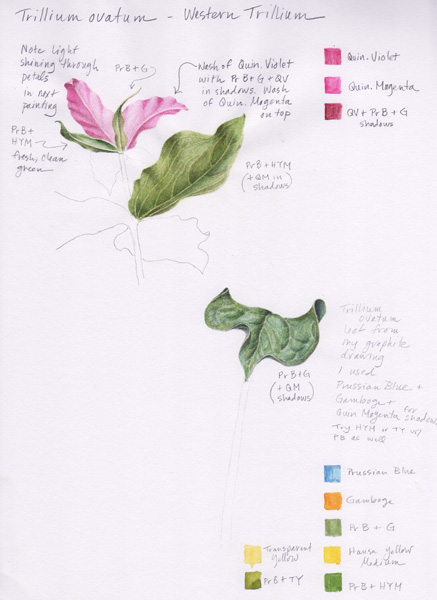 Trillium ovatum - Western Trillium
Note light
shining through
petals
in next
painting
PrB+G
Wash of Quin. Violet
with PrB+G+QV
in shadows. Wash
of Quin. Magenta
on top
Quin. Violet
Quin. Magenta
QV + PrB + G
shadows
PrB+
HYM
fresh, clean
green
PrB+HYM
(+QM in
shadows)
Trillium
ovatum
leaf from
my graphite
drawing
I used
Prussian Blue +
Gamboge +
Quin Magenta for shadows
Try HYM or TY w/
PB as well
PrB+G
(+QM
shadows)
Prussian Blue
Gamboge
PrB + G
Transparent
Yellow
Hansa Yellow
Medium
PrB+TY
PrB + HYM